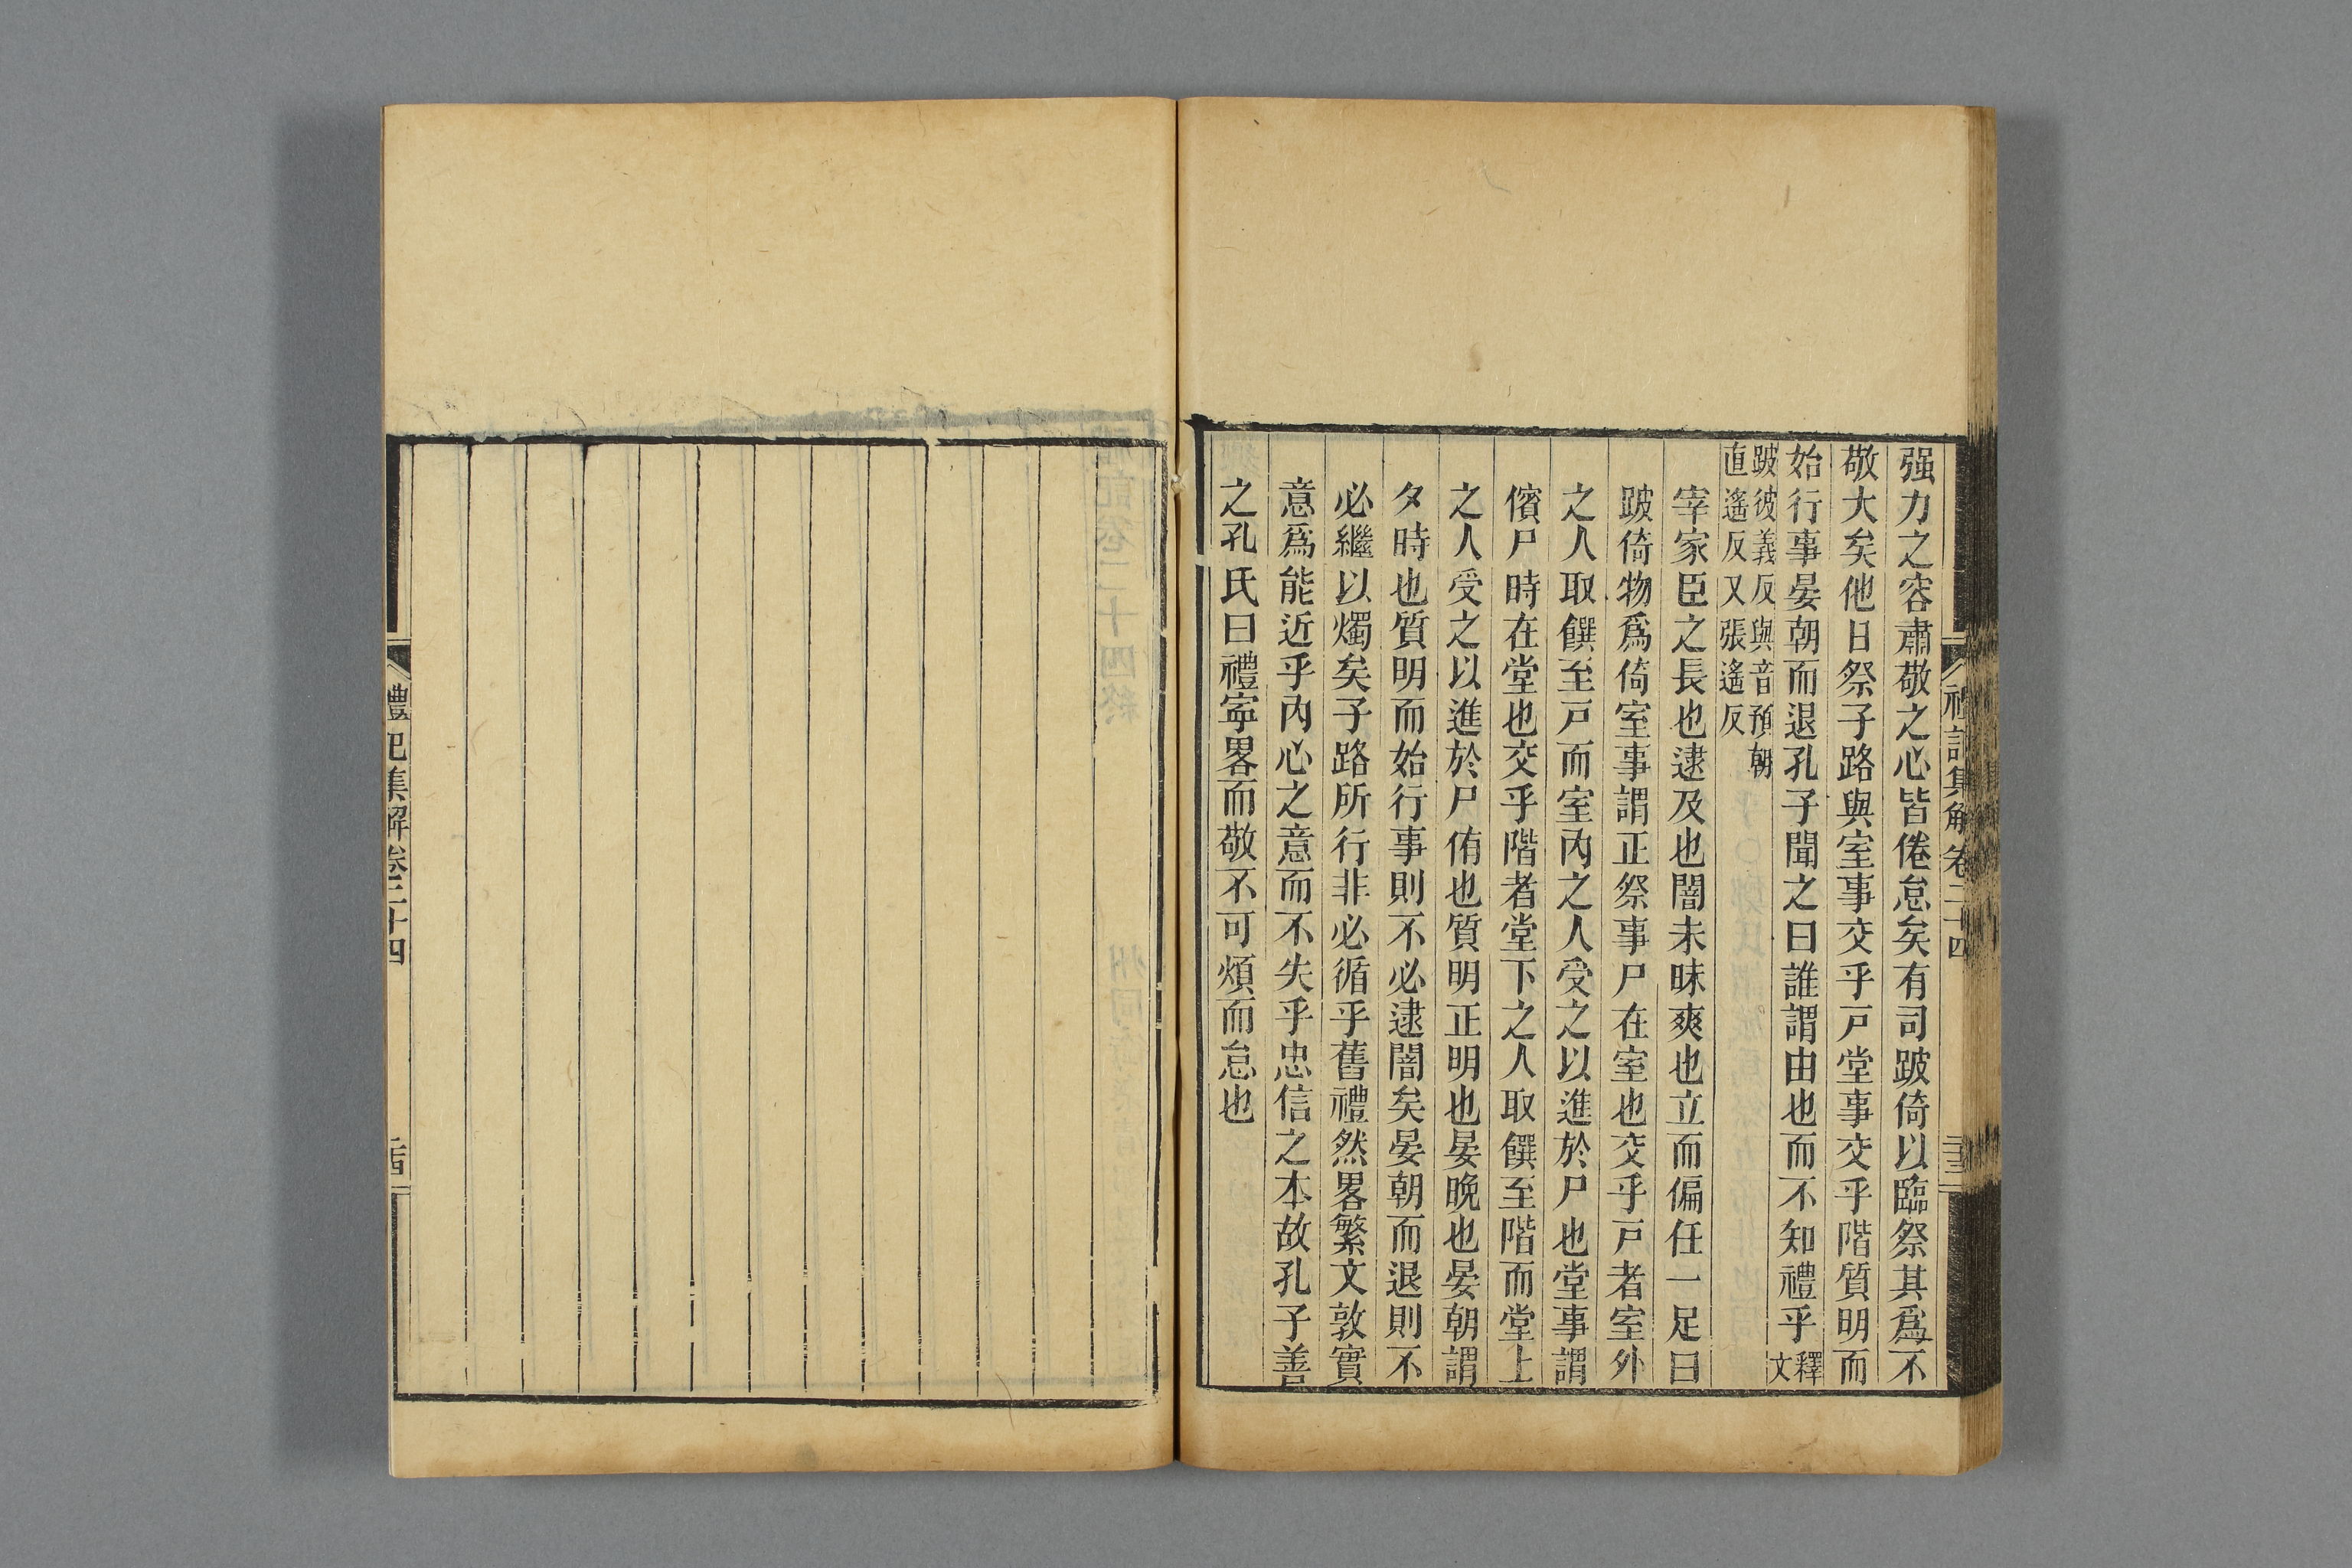 强力之容肅敬之心皆倦怠矣有司跛倚以臨祭其爲不
敬大矣他日祭子路與室事交乎戸堂事交乎階質明而
始行事晏朝而退孔子聞之曰誰謂由也而不知禮乎釋文
跛彼義反與音預朝
直遙反又張遙反
宰家臣之長也逮及也闇未昧爽也立而偏任一足曰
跛倚物爲倚室事謂正祭事尸在室也交乎戸者室外
之人取饌至戸而室內之人受之以進於尸也堂事謂
儐尸時在堂也交乎階者堂下之人取饌至階而堂上
之人受之以進於尸侑也質明正明也晏晚也晏朝謂
夕時也質明而始行事則不必逮闇矣晏朝而退則不
必繼以燭矣子路所行非必循乎舊禮然畧繁文敦實
意爲能近乎內心之意而不失乎忠信之本故孔子善
之孔氏曰禮寜畧而敬不可煩而怠也
禮記集解卷二十四
禮記集解卷二十四